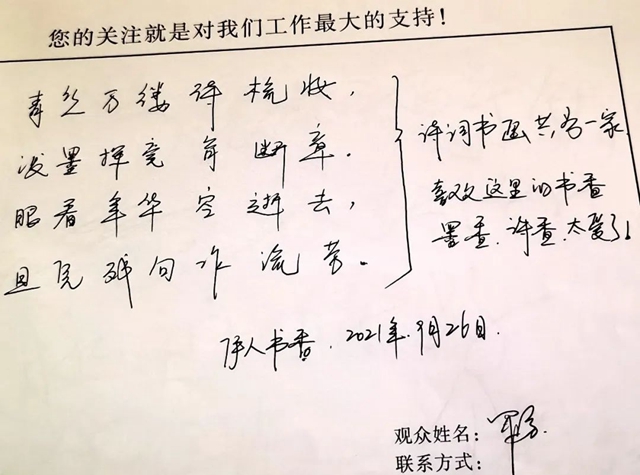 您的关注就是对我们工作最大的支持！
青丝万缕诗梳妆，
泼墨挥毫有断章。
眼看年华空逝去，
且凭残句作流芳。
诗词书画共为一家，
喜欢这里的书香
墨香、诗香，太爱了！
人书香．2021年9月26日．
观众姓名：
联系方式：